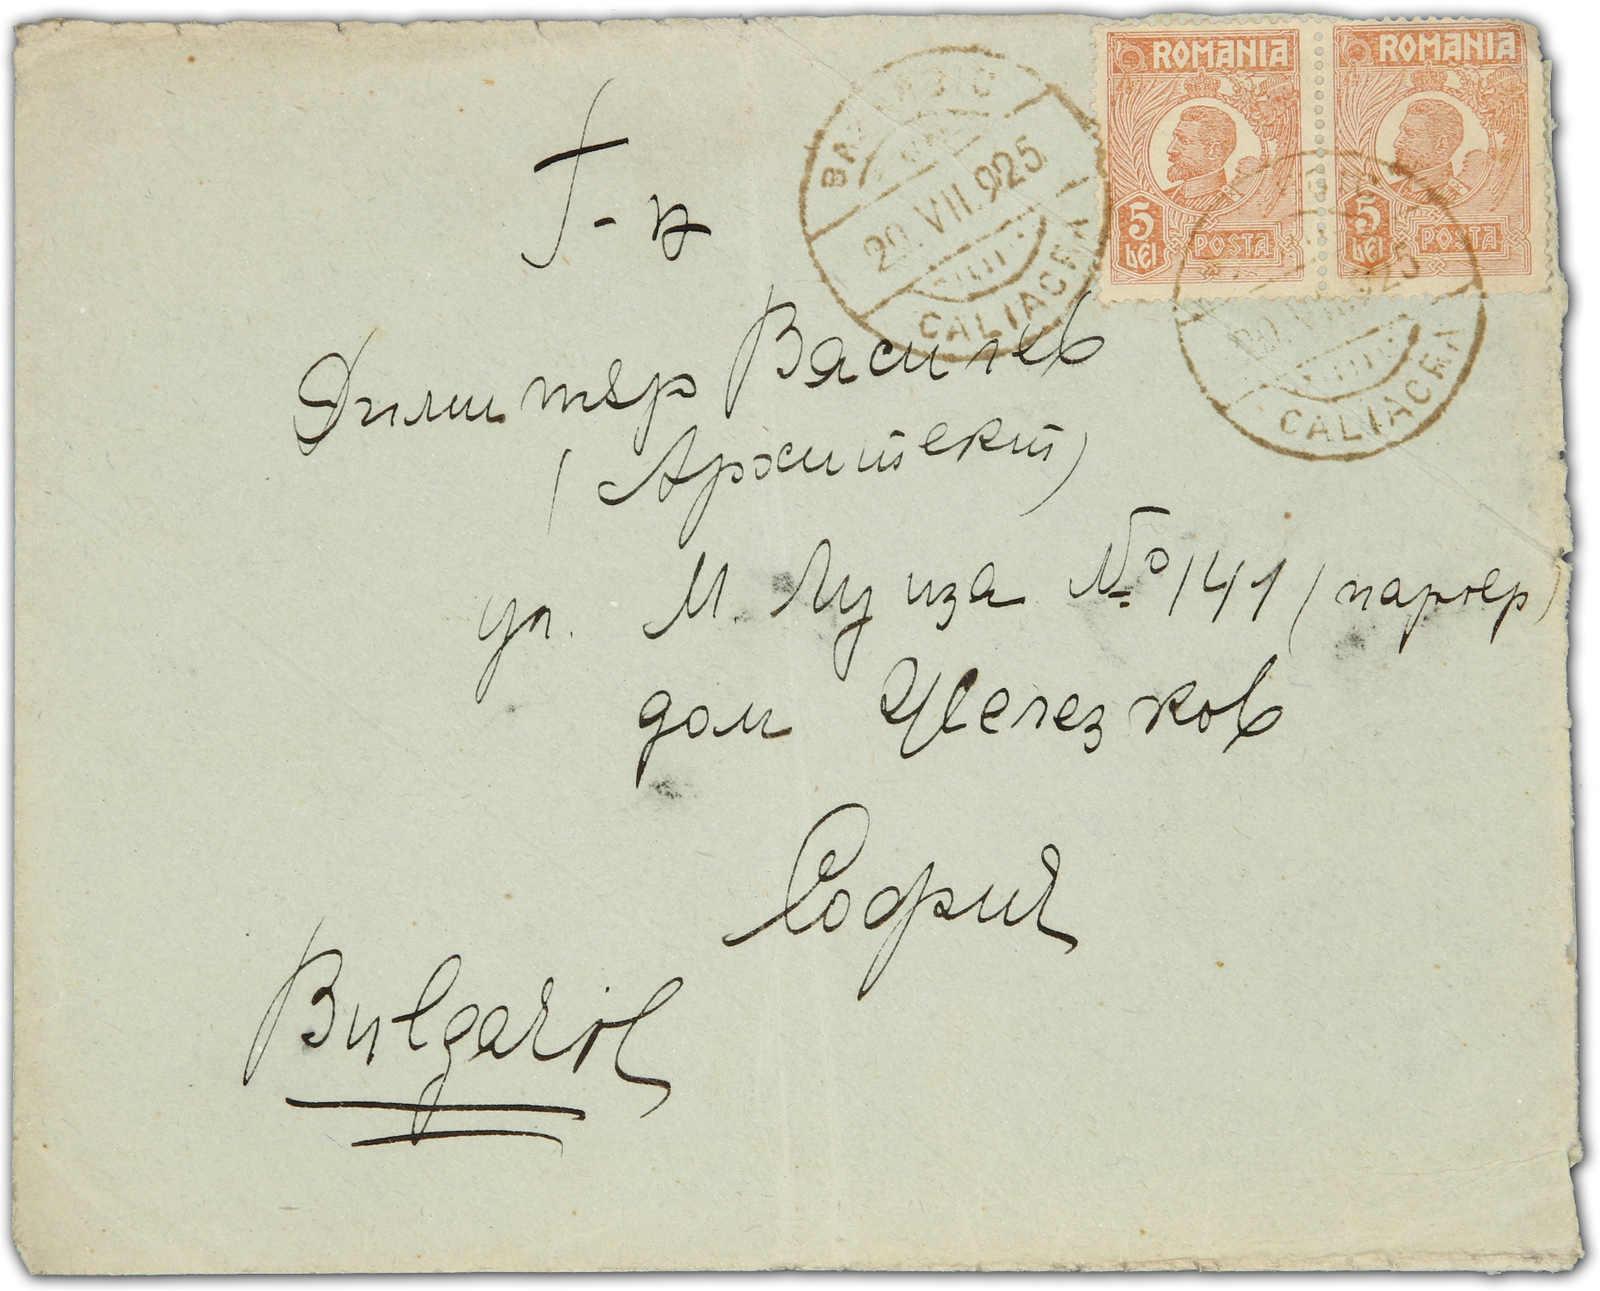 ROMANIA ROMANIA
5 LEI POSTA 5 LEI POSTA
BAZARGIC
20.VII.925
CALIACRA
CALIACRA
Г-н
Димитър Василев
(Архитект)
ул. М. Луиза № 141 (партер)
дом Железков
София
Bulgarie